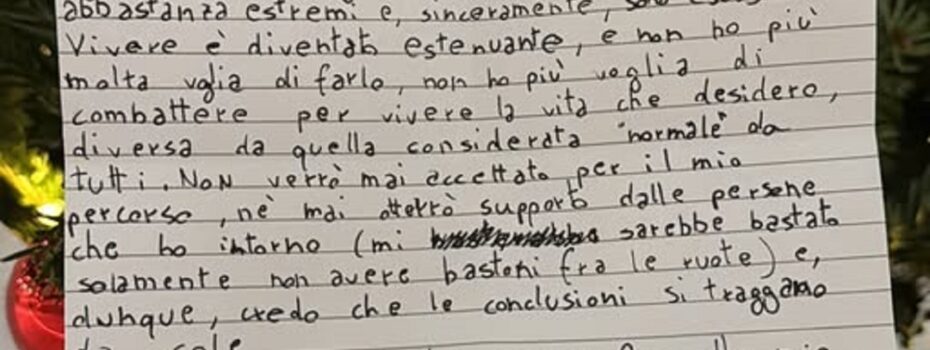 abbastanza estremi e, sinceramente,
Vivere è diventato estenuante, e non ho più
molta voglia di farlo, non ho più voglia di
combattere per vivere la vita che desidero,
diversa da quella considerata "normale" da
tutti. Non verrò mai accettato per il mio
percorso, nè mai otterrò supporto dalle persone
che ho intorno (mi sarebbe bastato
solamente non avere bastoni fra le ruote) e,
dunque, credo che le conclusioni si traggano
sole